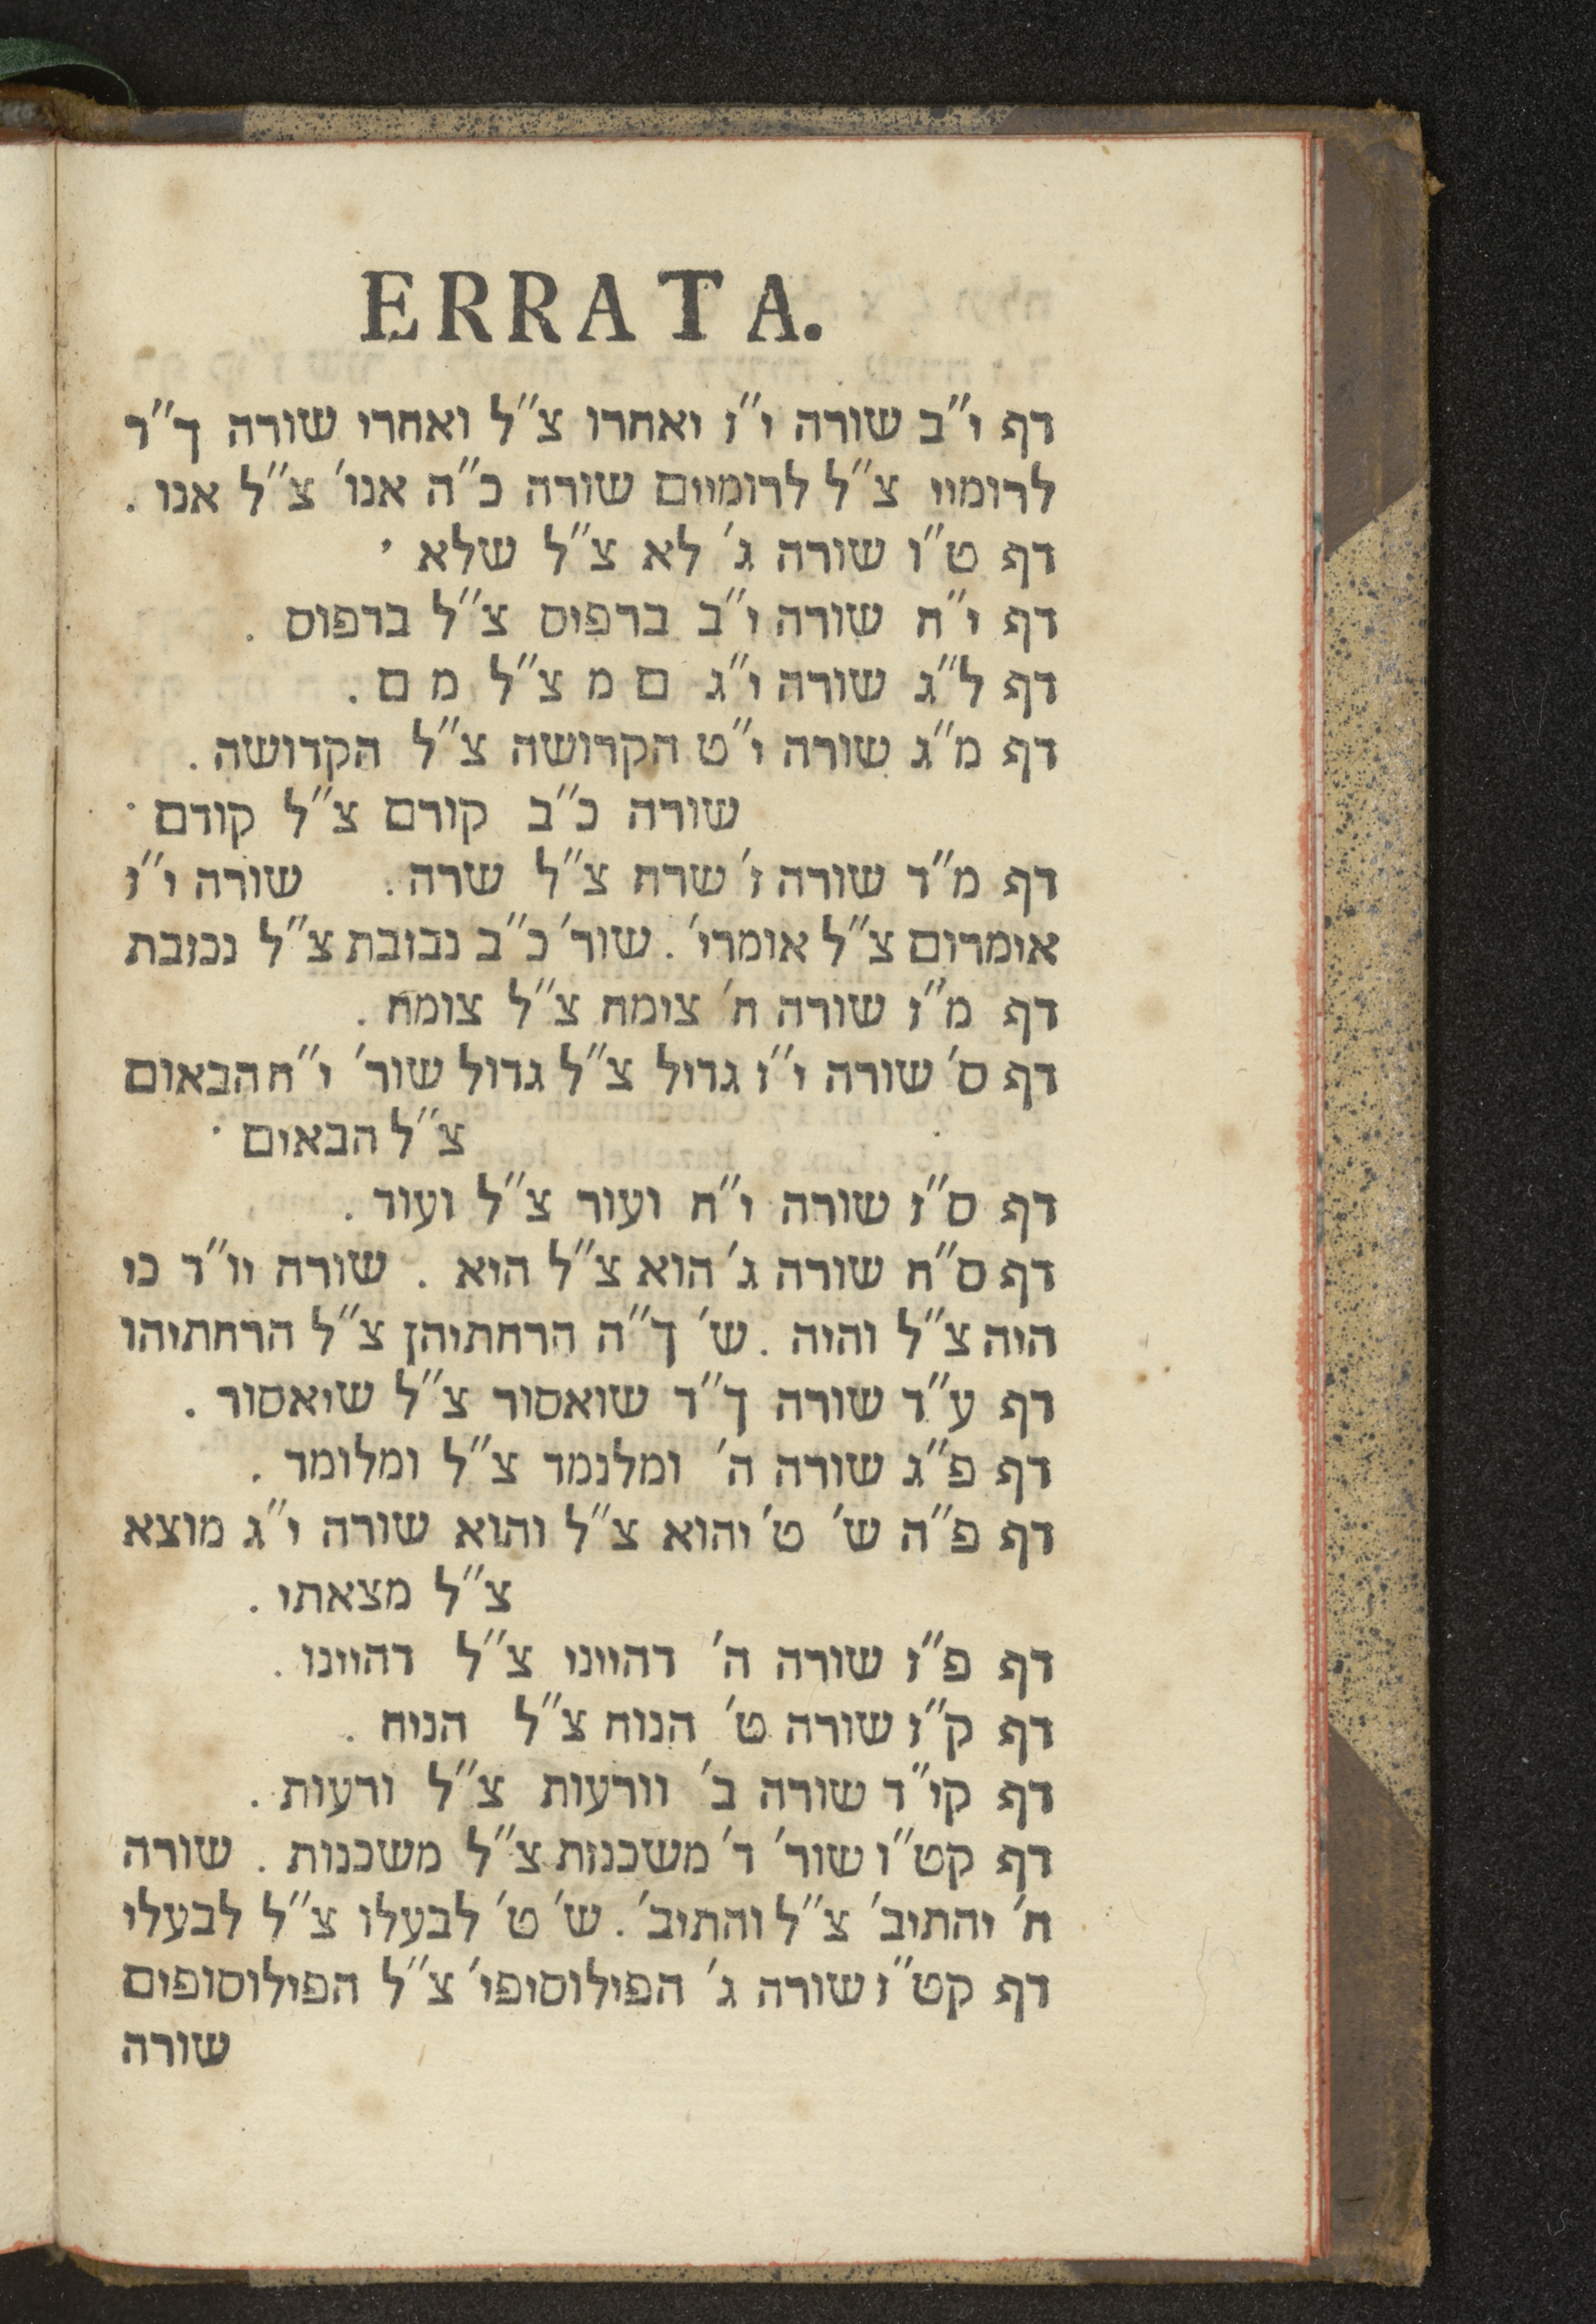 ERRATA.
דף י״ב שורה י״ז יאחרו צ״ל ואחרי שורה ך״ד
לרומיי צ״ל לרומיים שורה כ״ה אנו׳ צ״ל אנו .
דף ט״ו שורה ג׳ לא צ״ל שלא ׳
דף י״ח שורה י״ב ברפיס צ״ל ברפוס .
דף ל״ג שורה י״ג ם מ צ״ל מ ם .
דף מ״ג שורה י״ט הקרושה צ״ל הקדושה .
שורה כ״ב קורם צ״ל קודם ·
דף מ״ד שורה ז׳ שרח צ״ל שרה . שורה י״ז
אימרום צ״ל אומרי׳ . שור׳ כ״ב נבזבת צ״ל נכזבת
דף מ״ז שורה ח׳ צימח צ״ל צומח .
דף ס׳ שורה י״ז גדיל צ״ל גדול שור׳ י״ח הבאום
צ״ל הבאים ·
דף ס״ז שורה י״ח ועור צ״ל ועוד .
דף ס״ח שורה ג׳ הוא צ״ל היא . שורה יו״ד כי
היה צ״ל והיה . ש׳ ך״ה הרחתיהן צ״ל הרחתיהו
דף ע״ד שורה ך״ד שואסור צ״ל שיאסור .
דף פ״ג שורה ה׳ ומלנמד צ״ל ומלומד .
דף פ״ה ש׳ ט׳ יהוא צ״ל והוא שורה י״ג מוצא
צ״ל מצאתי .
דף פ״ז שורה ה׳ דהייני צ״ל דהיינו .
דף ק״ז שורה ט׳ הנוח צ״ל הניח .
דף קי״ד שורה ב׳ וורעות צ״ל ורעות .
דף קט״ו שור׳ ד׳ משכנזת צ״ל משכנות . שורה
ח׳ יהתיב׳ צ״ל והתיב׳ . ש׳ ט׳ לבעלו צ״ל לבעלי
דף קט״ז שורה ג׳ הפילוסיפי׳ צ״ל הפילוסופים
שורה